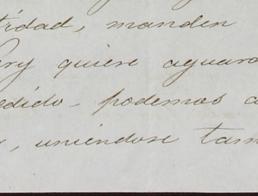 rdad, manden
ry quiere aguard
edido. podemos a
, uniéndose tam